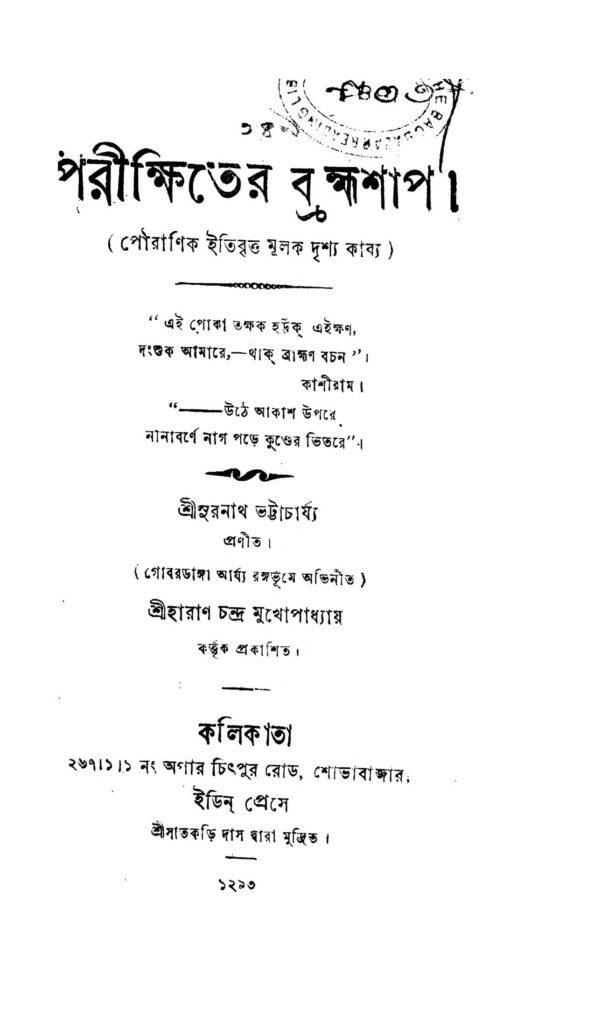 THE BAGBAZAR READING LI
পরীক্ষিতের ব্রহ্মশাপ।
( পৌরাণিক ইতিবৃত্ত মূলক দৃশ্য কাব্য )
“ এই পোকা তক্ষক হউক্ এইক্ষণ,
দংশুক আমারে,—থাক্ ব্রাহ্মণ বচন ”।
কাশীরাম।
“———উঠে আকাশ উপরে
নানাবর্ণে নাগ পড়ে কুণ্ডের ভিতরে”।
শ্রীসুরনাথ ভট্টাচার্য্য
প্রণীত।
( গোবরডাঙ্গা আর্য্য রঙ্গভূমে অভিনীত )
শ্রীহারাণ চন্দ্র মুখোপাধ্যায়
কর্ত্তৃক প্রকাশিত।
কলিকাতা
২৬৭।১।১ নং অপার চিৎপুর রোড, শোভাবাজার,
ইডিন্ প্রেসে
শ্রীসাতকড়ি দাস দ্বারা মুদ্রিত।
১২৯৩